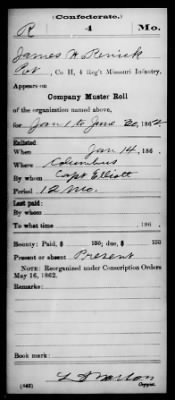 (Confederate.)
R 4 Mo.
James H. Penick
Pvt, Co. H, 4 Reg't Missouri Infantry.
Appears on
Company Muster Roll
of the organization named above,
for Jan 1 to June 30, 1862.
Enlisted:
When Jan 14, 186 .
Where Columbus
By whom Capt Elliott
Period 12 Mo.
Last paid:
By whom
To what time , 186 .
Bounty: Paid, $ 100; due, $ 100
Present or absent Present
NOTE: Reorganized under Conscription Orders
May 16, 1862.
Remarks:
Book mark:
(642) Copyist.